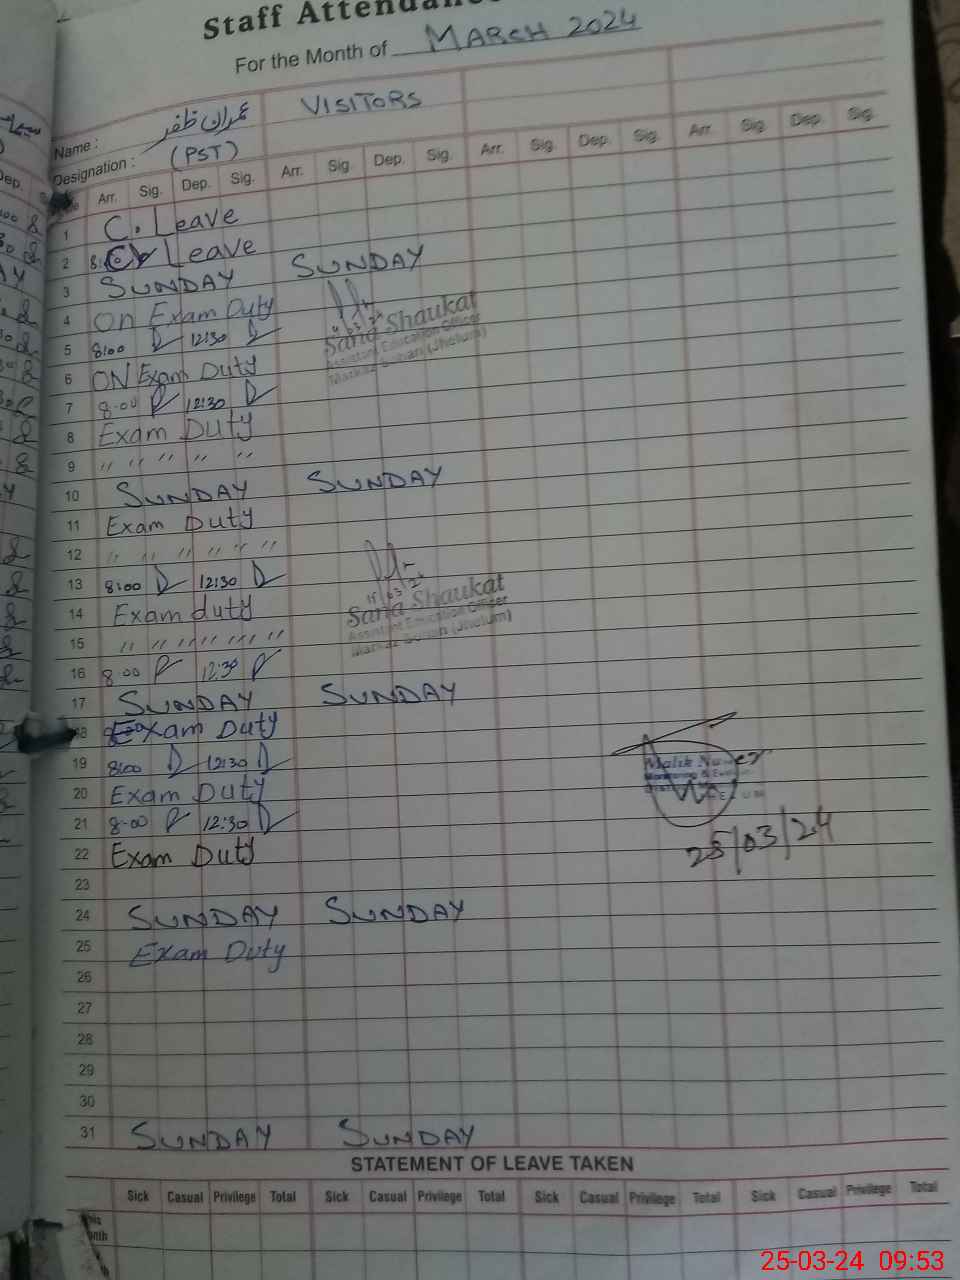 Staff Attendance
For the Month of MARCH 2024
Name : عمران ظفر VISITORS
Designation : (PST)
Arr. Sig. Dep. Sig. Arr. Sig. Dep. Sig. Arr. Sig. Dep. Sig. Arr. Sig. Dep. Sig.
1 C. Leave
2 Leave
3 SUNDAY SUNDAY
4 On Exam Duty
Sana Shaukat
Assistant Education Officer
(Jhelum)
5 8:00 12:30
6 ON Exam Duty
7 8-00 12:30
8 Exam Duty
9 " " " " "
10 SUNDAY SUNDAY
11 Exam Duty
12 " " " " " "
13 8:00 12:30
15/03/24
Sana Shaukat
Assistant Education Officer
(Jhelum)
14 Exam duty
15 " " " " " " "
16 8-00 12:30
17 SUNDAY SUNDAY
18 Exam Duty
19 8:00 12:30
Malik
20 Exam Duty
21 8-00 12:30
25/03/24
22 Exam Duty
23
24 SUNDAY SUNDAY
25 Exam Duty
26
27
28
29
30
31 SUNDAY SUNDAY
STATEMENT OF LEAVE TAKEN
Sick Casual Privilege Total Sick Casual Privilege Total Sick Casual Privilege Total Sick Casual Privilege Total
25-03-24 09:53